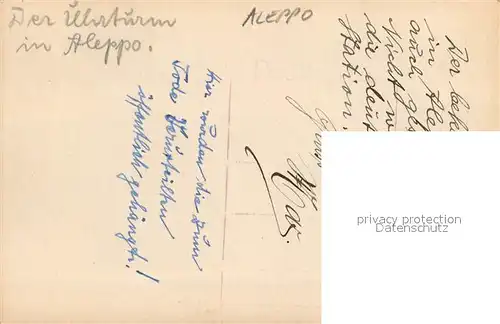 Der Uhrturm
in Aleppo.
ALEPPO
Hier wurden die zum
Tode Verurteilten
öffentlich gehängt!
Der
in Ale
auch
Nicht
die deut
Station.
Max.
privacy protection
privacy protection